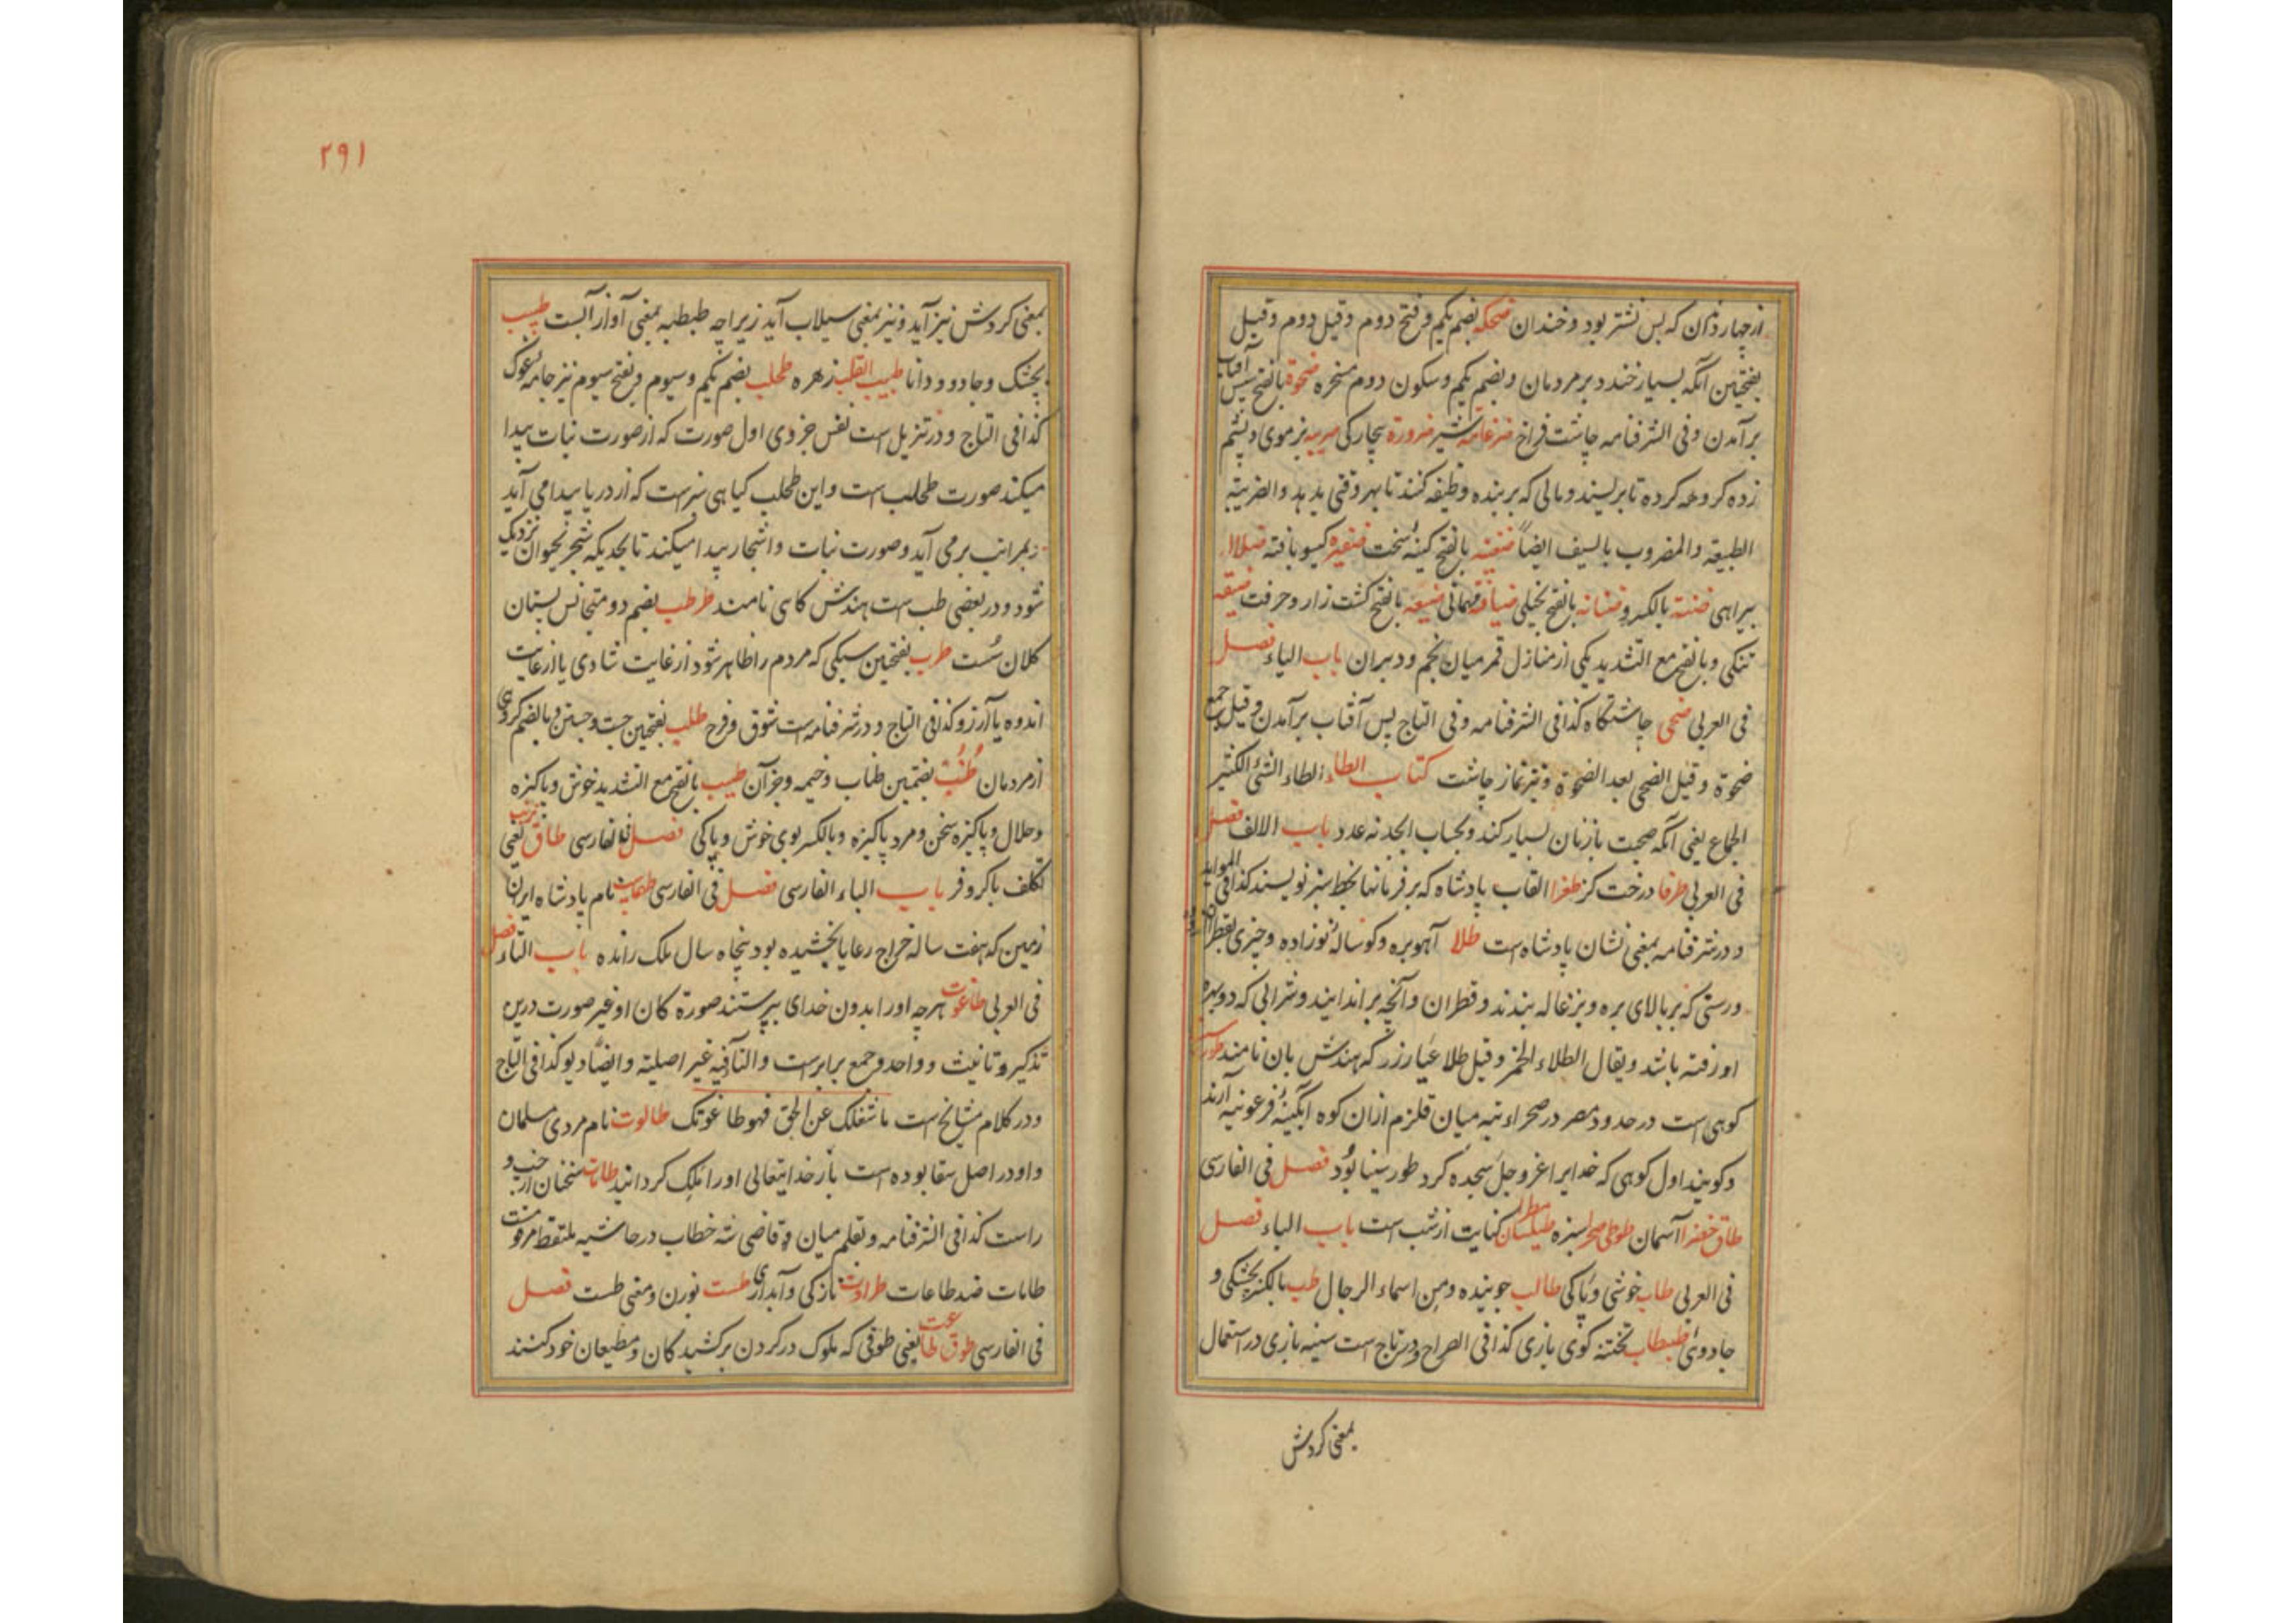 ازچهار دندان که پس نشتر بود و خندان ضحکه بضم یکم و فتح دوم وقیل دوم وقیل
بفتحتین آنکه بسیار خندد بر مردمان و بضم یکم و سکون دوم مسخره ضحوة بالفتح سپس آفتاب
برآمدن وفی الشرفنامه چاشت فراخ ضرغامه شیر ضرورة بیچارگی ضریبه بز موی و پشم
زده کروهه کرده تا بریسند و مالی که بر بنده وظیفه کنند تا بهر وقتی بدهد والضریبة
الطبیعة والمضروب بالسیف ایضاً ضغینه بالفتح کینهٔ سخت ضفیره گیسو بافته ضلاله
بیراهی ضنة بالکسر و ضنانة بالفتح بخیلی ضیافة مهمانی ضیعه بالفتح کشت زار و حرفت ضیقه
تنگی و بالفتح مع التشدید یکی از منازل قمر میان نجم و دبران باب الیاء فصل
فی العربی ضحی چاشتگاه کذا فی الشرفنامه وفی التاج پس آفتاب برآمدن وقیل جمع
ضحوة وقیل الضحی بعد الضحوة و نیز نماز چاشت کتاب الطاء الطاء الشیئ الکثیر
الجماع یعنی آنکه صحبت با زنان بسیار کند و بحساب ابجد نه عدد باب الالف فصل
فی العربی طرفا درخت گز طغرا القاب پادشاه که بر فرمانها بخط سبز نویسند کذا فی الموائد
و در شرفنامه بمعنی نشان پادشاه است طلا آهوبره و گوسالهٔ نوزاده و چیزی
ورسنی که بر بالای بره و بزغاله بندند و قطران و آنچه بر اندایند و شرابی که دو بهره
او رفته باشد ویقال الطلاء الخمر وقیل طلا عیار زر که هندش بان نامند طور سینا
کوهی است در حدود مصر در صحراء تیه میان قلزم ازان کوه آبگینهٔ فرعونیه آرند
وکویند اول کوهی که خدایرا عزوجل سجده کرد طور سینا بود فصل فی الفارسی
طاق خضرا آسمان طوطی صحرا سبزه طیلسان مطرا کنایت از شب است باب الباء فصل
فی العربی طاب خوشی و پاکی طالب جوینده ومن اسماء الرجال طب بالکسر بچشکی و
جادوئی طبطاب تخته گوی بازی کذا فی الصراح ودر تاج است سینه بازی در استعمال
بمعنی کردش
۲۹۱
بمعنی کردش نیز آید و نیز بمعنی سیلاب آید زیراچه طبطبه بمعنی آواز آبست طبیب
بچشک و جادو و دانا طبیب القلب زهره طحلب بضم یکم و سیوم و بفتح سیوم نیز جامه غوک
کذا فی التاج و در تنزیل است نفس جزوی اول صورت که از صورت نبات پیدا
میکند صورت طحلب است و این طحلب گیاهی سبزست که از دریا پیدا می آید
بمراتب برمی آید و صورت نبات و اشجار پیدا میکند تا بحدیکه شجر بحیوان نزدیک
شود و در بعضی طب است هندش کاهی نامند طرطب بضم دو متجانس پستان
کلان سست طرب بفتحتین سبکی که مردم را ظاهر شود از غایت شادی یا از غایت
اندوه یا آرزو کذا فی التاج و در شرفنامه است شوق و فرح طلب بفتحتین جست و جستن و بالضم گروهی
از مردمان طنب بضمتین طناب و خیمه و جز آن طیب بالفتح مع التشدید خوش و پاکیزه
و حلال و پاکیزه سخن و مرد پاکیزه و بالکسر بوی خوش و پاکی فصل فی الفارسی طاق ترنب یعنی
تکلف باکروفر باب الباء الفارسی فصل فی الفارسی نام پادشاه ایران
زمین که هفت ساله خراج رعایا بخشیده بود پنجاه سال ملک رانده باب التاء فصل
فی العربی طاغوت هرچه او را بدون خدای بپرستند صورة کان او غیر صورت درین
تذکیر و تانیث و واحد و جمع برابرست والتاء فیه غیر اصلیة وایضاً دیو کذا فی التاج
ودر کلام مشایخ است ما شغلک عن الحق فهو طاغوتک طالوت نام مردی مسلمان
و او در اصل سقا بوده است باز خدایتعالی او را ملک گردانید طامات سخنان از چپ و
راست کذا فی الشرفنامه و بقلم میان قاضی شه خطاب در حاشیه ملتقط مرقومست
طامات ضد طاعات طراوت تازکی و آبداری طست نورن و معنی طست فصل
فی الفارسی طوق طاعت یعنی طوقی که ملوک در گردن برکشیدکان و مطیعان خود کنند